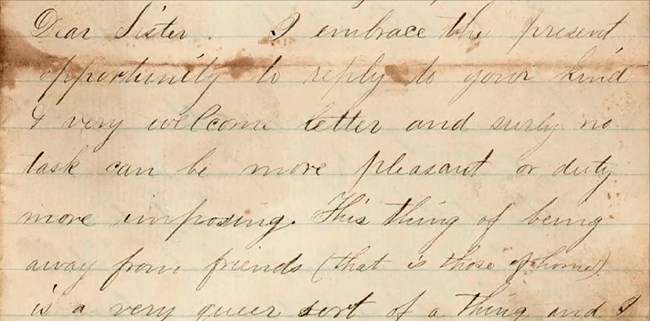 Dear Sister. I embrace the present
opportunity to reply to your kind
& very welcome letter and surly no
task can be more pleasant or duty
more imposing. This thing of being
away from friends (that is those of home)
is a very queer sort of a thing and I